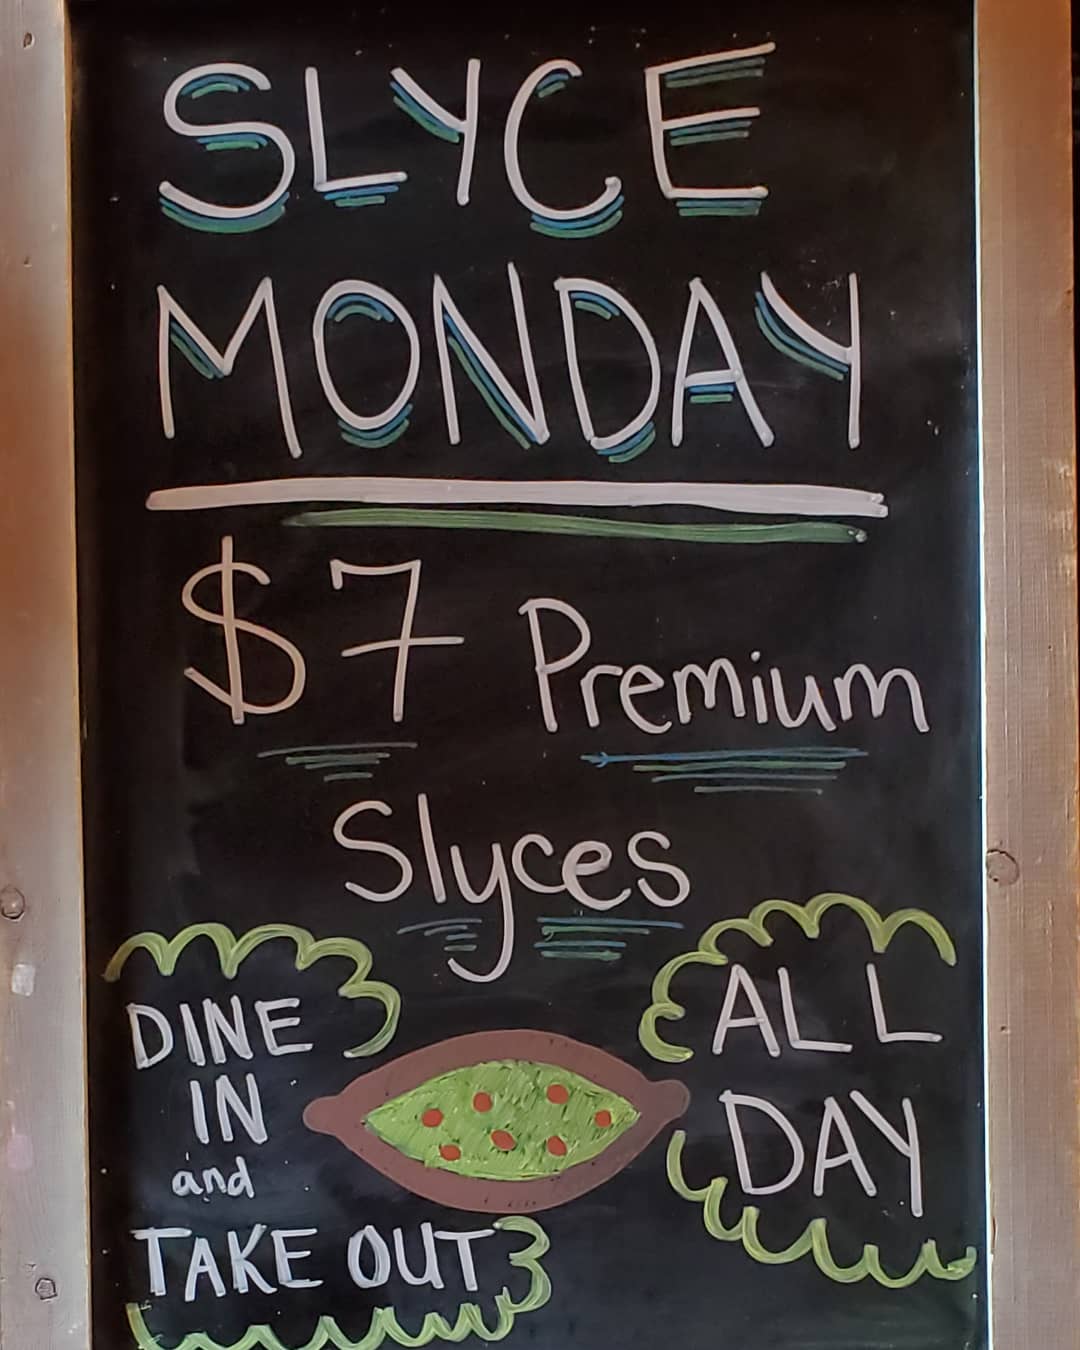 SLYCE
MONDAY
$7 Premium
Slyces
DINE
IN
and
TAKE OUT
ALL
DAY